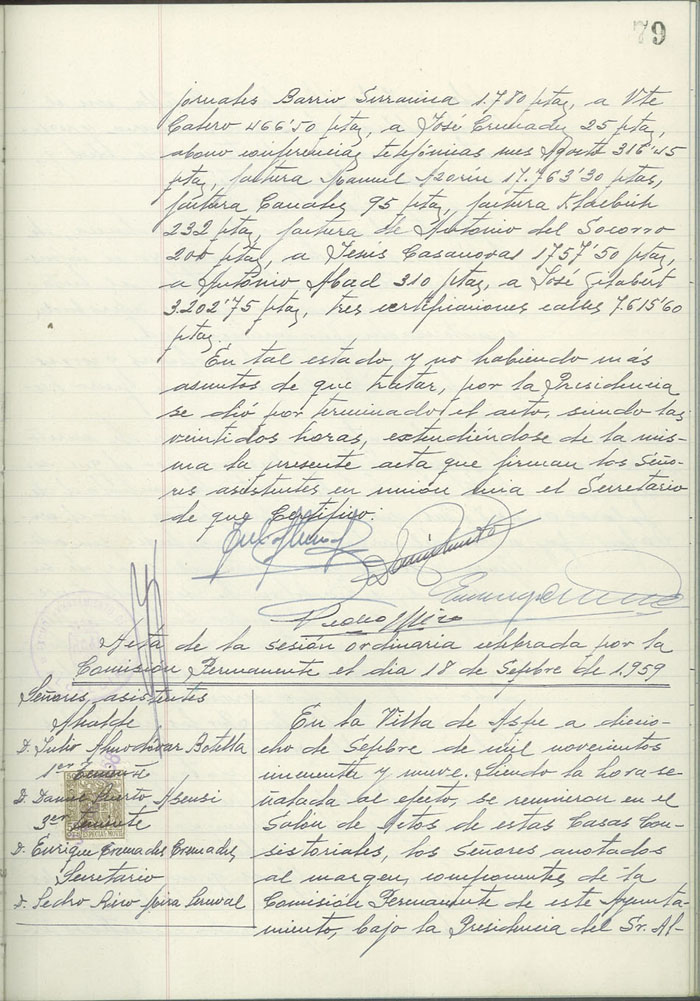 79
jornales Barrio Serranica 1.780 ptas, a Vte
Calero 466'50 ptas, a José Cremades 25 ptas,
abono conferencias telefónicas mes Agosto 316'45
ptas, factura Manuel Azorin 17.763'30 ptas,
factura Candela 95 ptas, factura
232 ptas, factura de Antonio del Socorro
200 ptas, a Jesús Casanovas 1757'50 ptas,
a Antonio Abad 310 ptas, a José Gisbert
3.202'75 ptas, tres certificaciones calles 7.615'60
ptas.
En tal estado y no habiendo más
asuntos de que tratar, por la Presidencia
se dió por terminado el acto, siendo las
veintidos horas, extendiéndose de la mis-
ma la presente acta que firman los Seño-
res asistentes en unión mia el Secretario
de que Certifico:
Pedro
Acta de la sesión ordinaria celebrada por la
Comisión Permanente el dia 18 de Sepbre de 1.959
Señores asistentes
Alcalde
D. Julio Almodóvar Botella
1er Teniente
D. Daniel Puerto Asensi
3er Teniente
D. Enrique Cremades Cremades
Secretario
D. Pedro
En la Villa de Aspe a diecio-
cho de Sepbre de mil novecientos
cincuenta y nueve. Siendo la hora se-
ñalada al efecto, se reunieron en el
Salón de Actos de estas Casas Con-
sistoriales, los Señores anotados
al margen, componentes de la
Comisión Permanente de este Ayunta-
miento, bajo la Presidencia del Sr. Al-